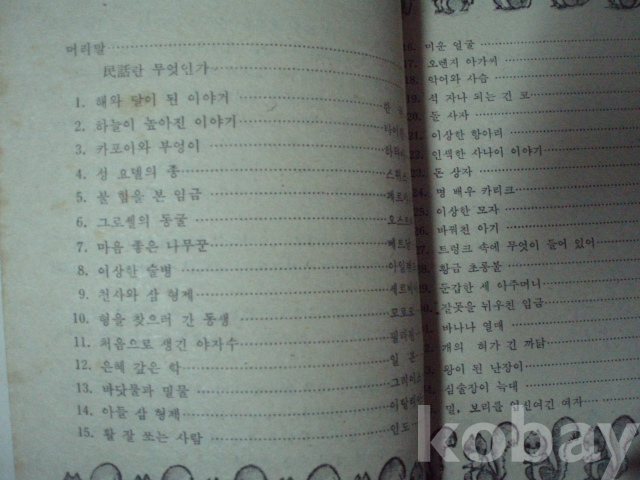 머리말
民話란 무엇인가
1. 해와 달이 된 이야기 한
2. 하늘이 높아진 이야기
3. 카포이와 부엉이 하와
4. 성 요델의 종 스위스
5. 불 협을 본 임금 페르
6. 그로셀의 동굴 오스
7. 마음 좋은 나무꾼 베트남
8. 이상한 술병 아일랜
9. 천사와 삼 형제 세르비
10. 형을 찾으러 간 동생 모로코
11. 처음으로 생긴 야자수 필리핀
12. 은혜 갚은 학 일 본
13. 바닷물과 밀물 그리이스
14. 아들 삼 형제 이탈리
15. 활 잘 쏘는 사람 인도
16. 미운 얼굴
17. 오렌지 아가씨
18. 악어와 사슴
19. 석 자나 되는 긴 코
20. 돌 사자
21. 이상한 항아리
22. 인색한 사나이 이야기
23. 돈 상자
24. 명 배우 카리크
25. 이상한 모자
26. 바꿔친 아기
27. 트렁크 속에 무엇이 들어 있어
28. 황금 초롱불
29. 둔갑한 세 아주머니
30. 잘못을 뉘우친 임금
바나나 열매
개의 허가 긴 까닭
왕이 된 난장이
심술장이 늑대
밀, 보리를 업신여긴 여자
kobay